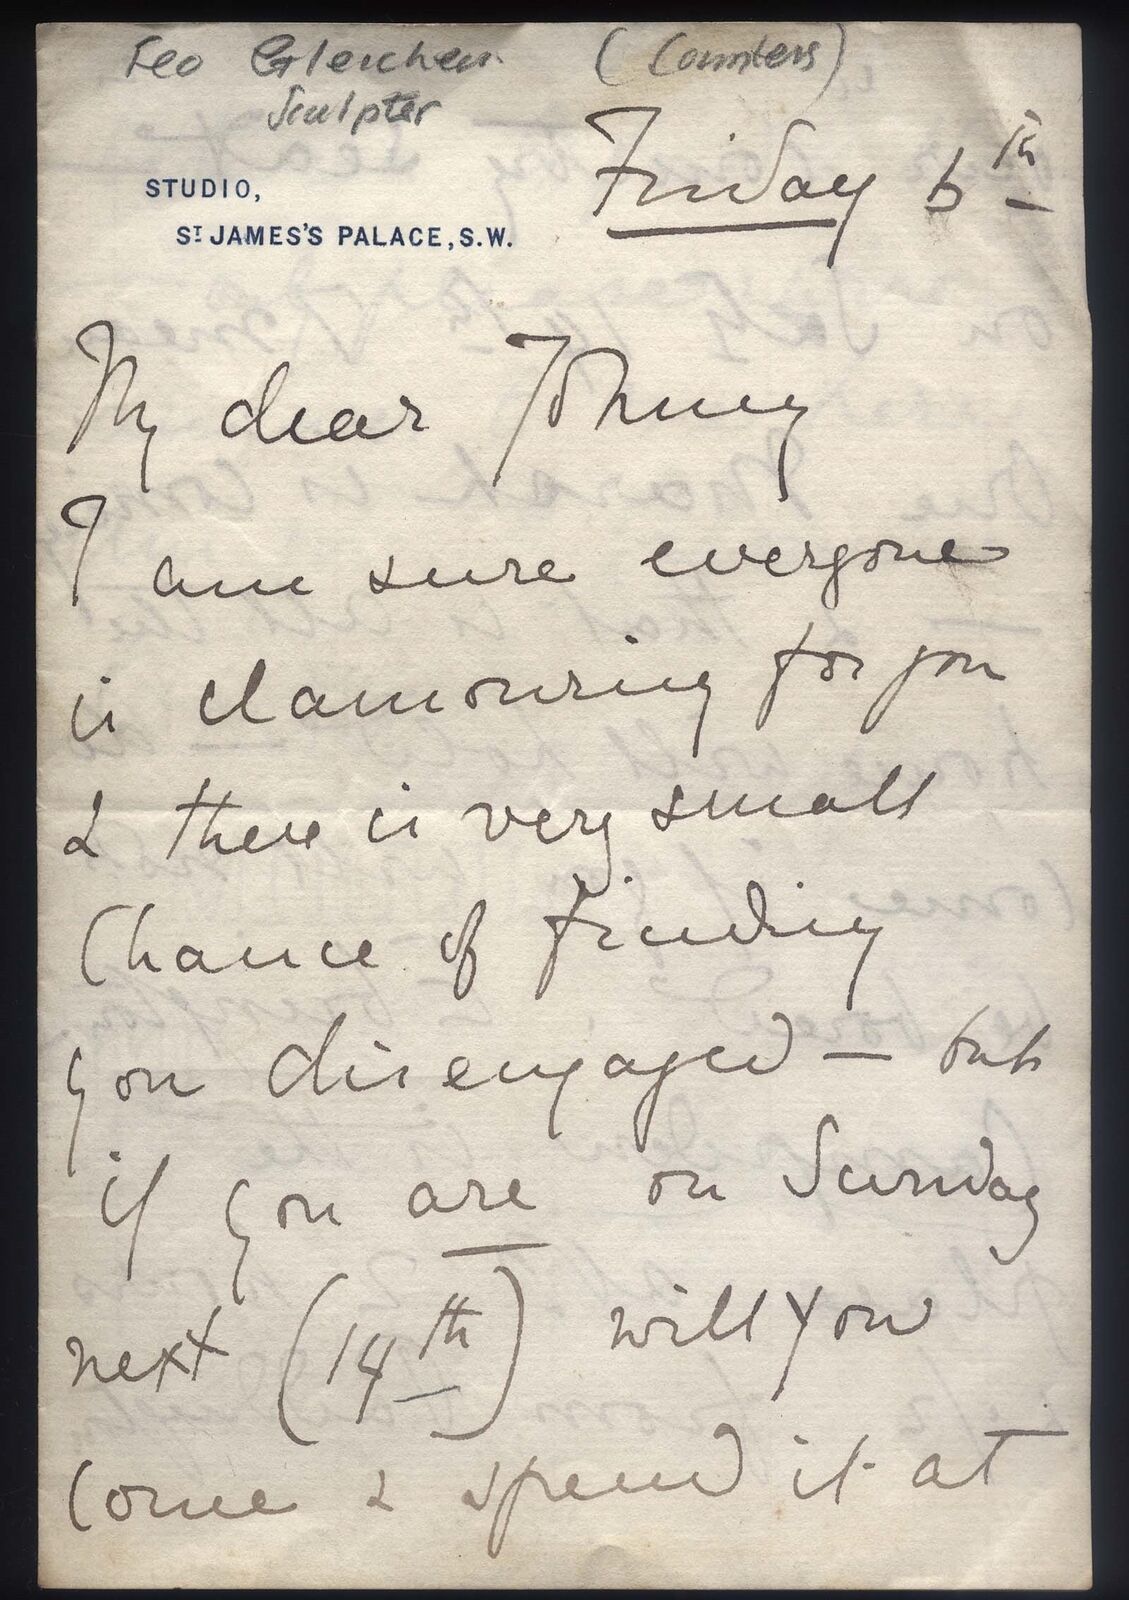 Feo Gleichen (Countess)
Sculpter
Friday 6th
STUDIO,
ST JAMES'S PALACE, S.W.
My dear Johnny
I am sure everyone
is clamouring for you
& there is very small
chance of finding
you disengaged — but
if you are on Sunday
next (14th) will you
come & spend it at